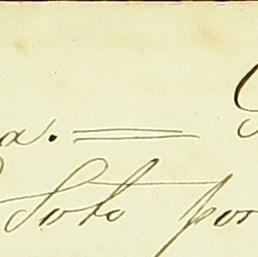 a. =
Soto por